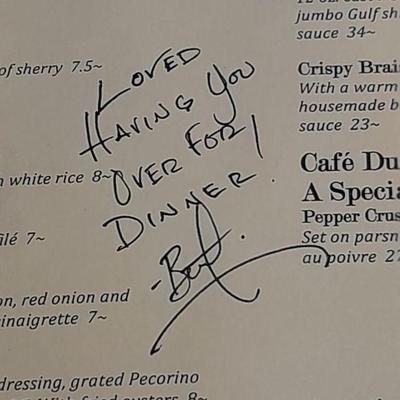 jumbo Gulf sh
sauce 34~
of sherry 7.5~
Crispy Brais
With a warm
housemade b
sauce 23~
LOVED
HAVING YOU
OVER FOR
DINNER.
white rice 8~
Café Du
A Specia
Pepper Crus
Set on parsn
au poivre 27
filé 7~
on, red onion and
vinaigrette 7~
dressing, grated Pecorino